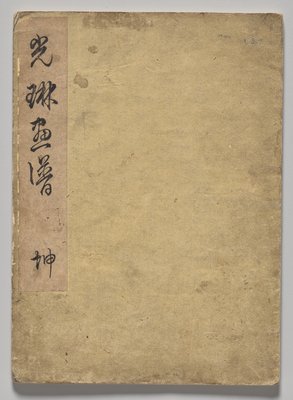 光琳画譜 坤